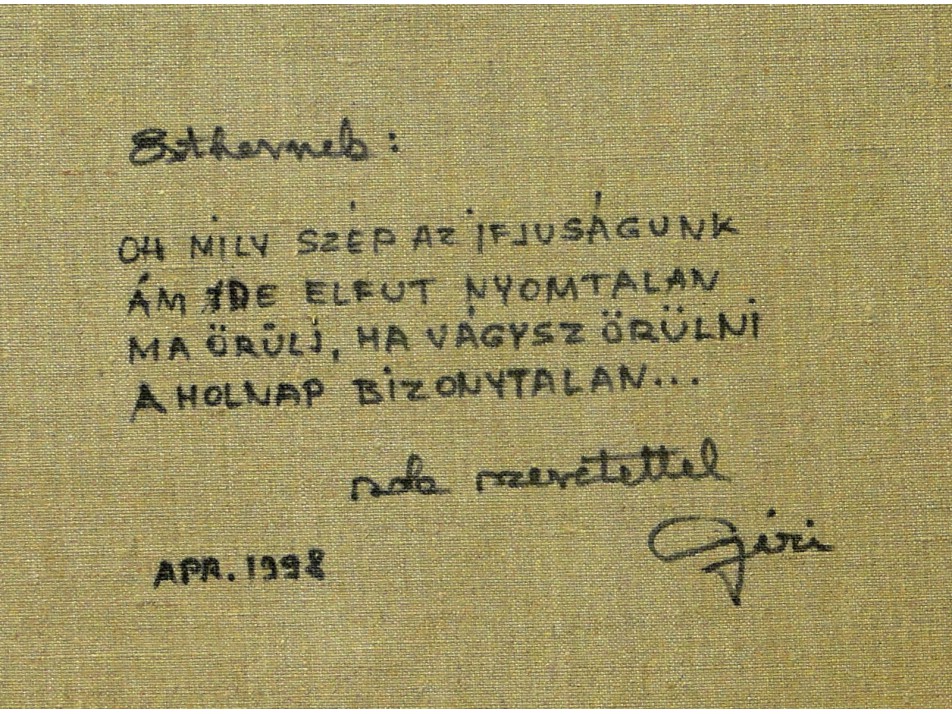 Esthernek:
OH MILY SZÉP AZ IFJUSÁGUNK
ÁM DE ELFUT NYOMTALAN
MA ÖRÜLJ, HA VÁGYSZ ÖRÜLNI
A HOLNAP BIZONYTALAN...
sok szeretettel
APR. 1998